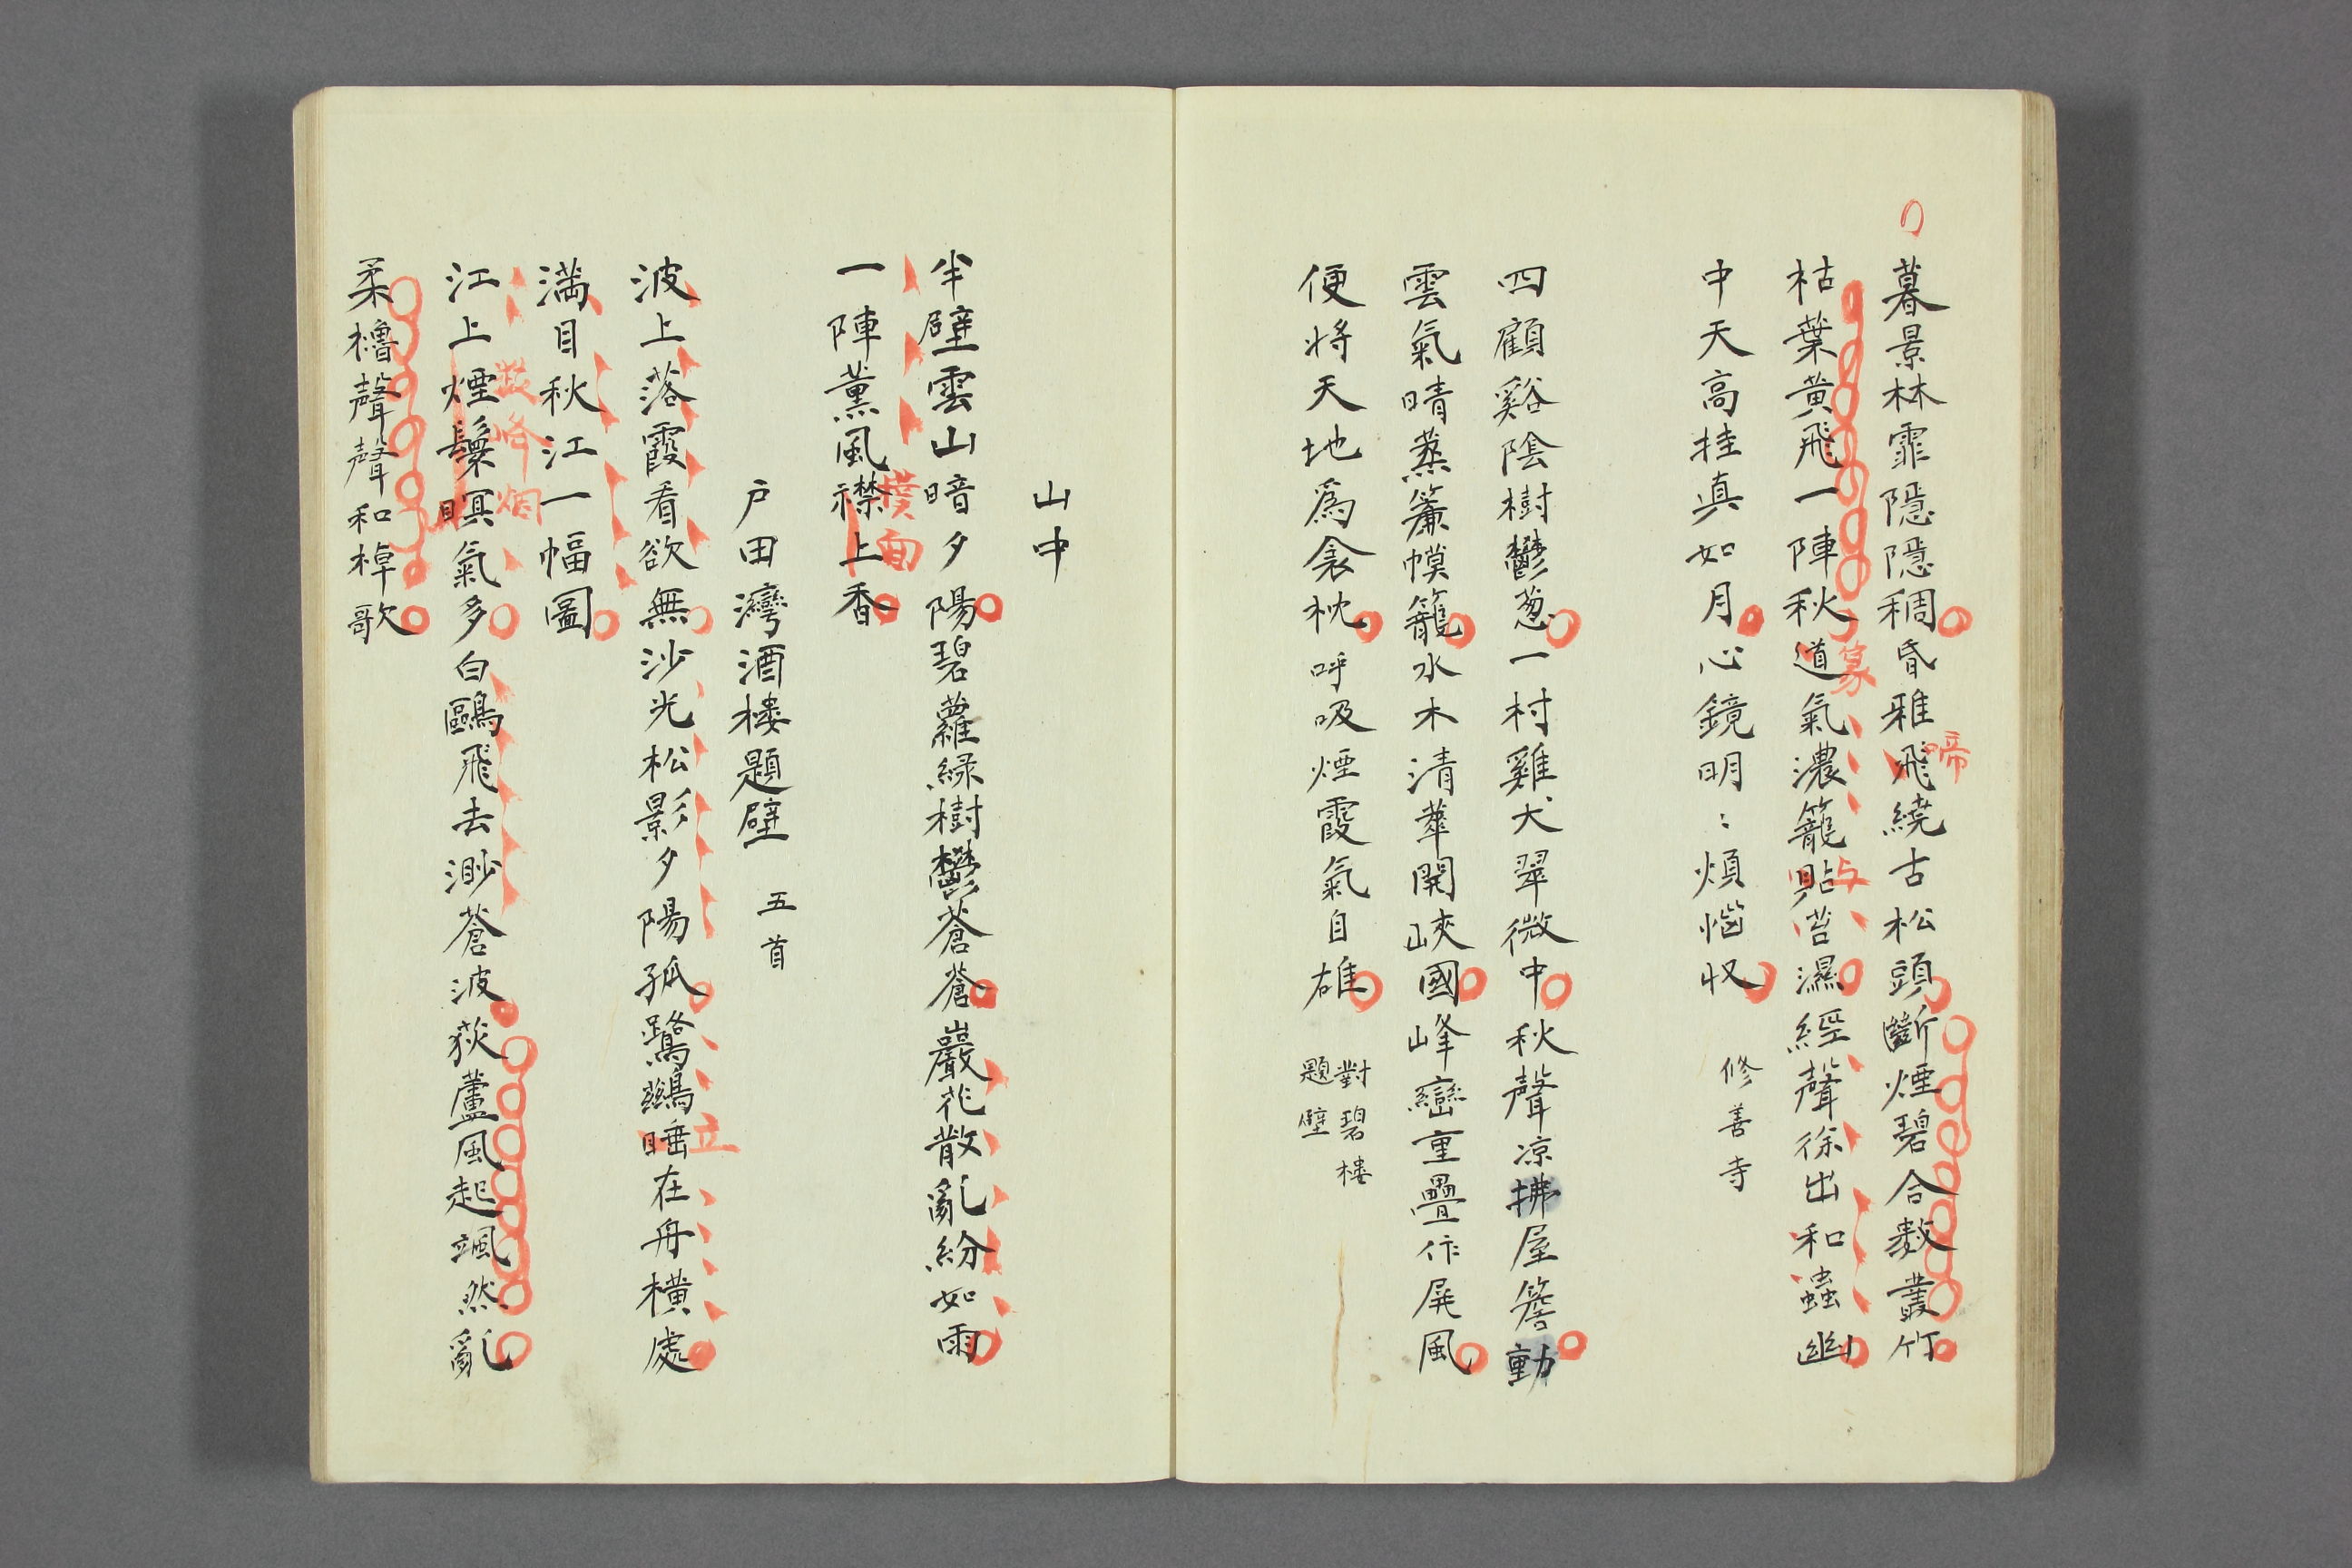 暮景林霏隱隱稠昏雅飛繞古松頭斷煙碧合數叢竹
啼
枯葉黄飛一陣秋道氣濃籠貼苔濕經聲徐出和蟲幽
篆
与
中天高挂真如月心鏡明〻煩惱収
修善寺
四顧谿陰樹鬱葱一村雞犬翠微中秋聲凉拂屋簷動
雲氣晴蒸簾幙籠水木清華開峽國峰巒重疊作屏風
便将天地爲衾枕呼吸煙霞氣自雄
對碧樓
題壁
山中
半壁雲山暗夕陽碧蘿緑樹鬱蒼蒼巖花散亂紛如雨
一陣薫風襟上香
撲面
戸田灣酒樓題壁 五首
波上落霞看欲無沙光松影夕陽孤鷺鷀睡在舟橫處
立
満目秋江一幅圖
江上煙鬟暝氣多白鷗飛去渺蒼波荻蘆風起颯然亂
柔櫓聲聲和棹歌